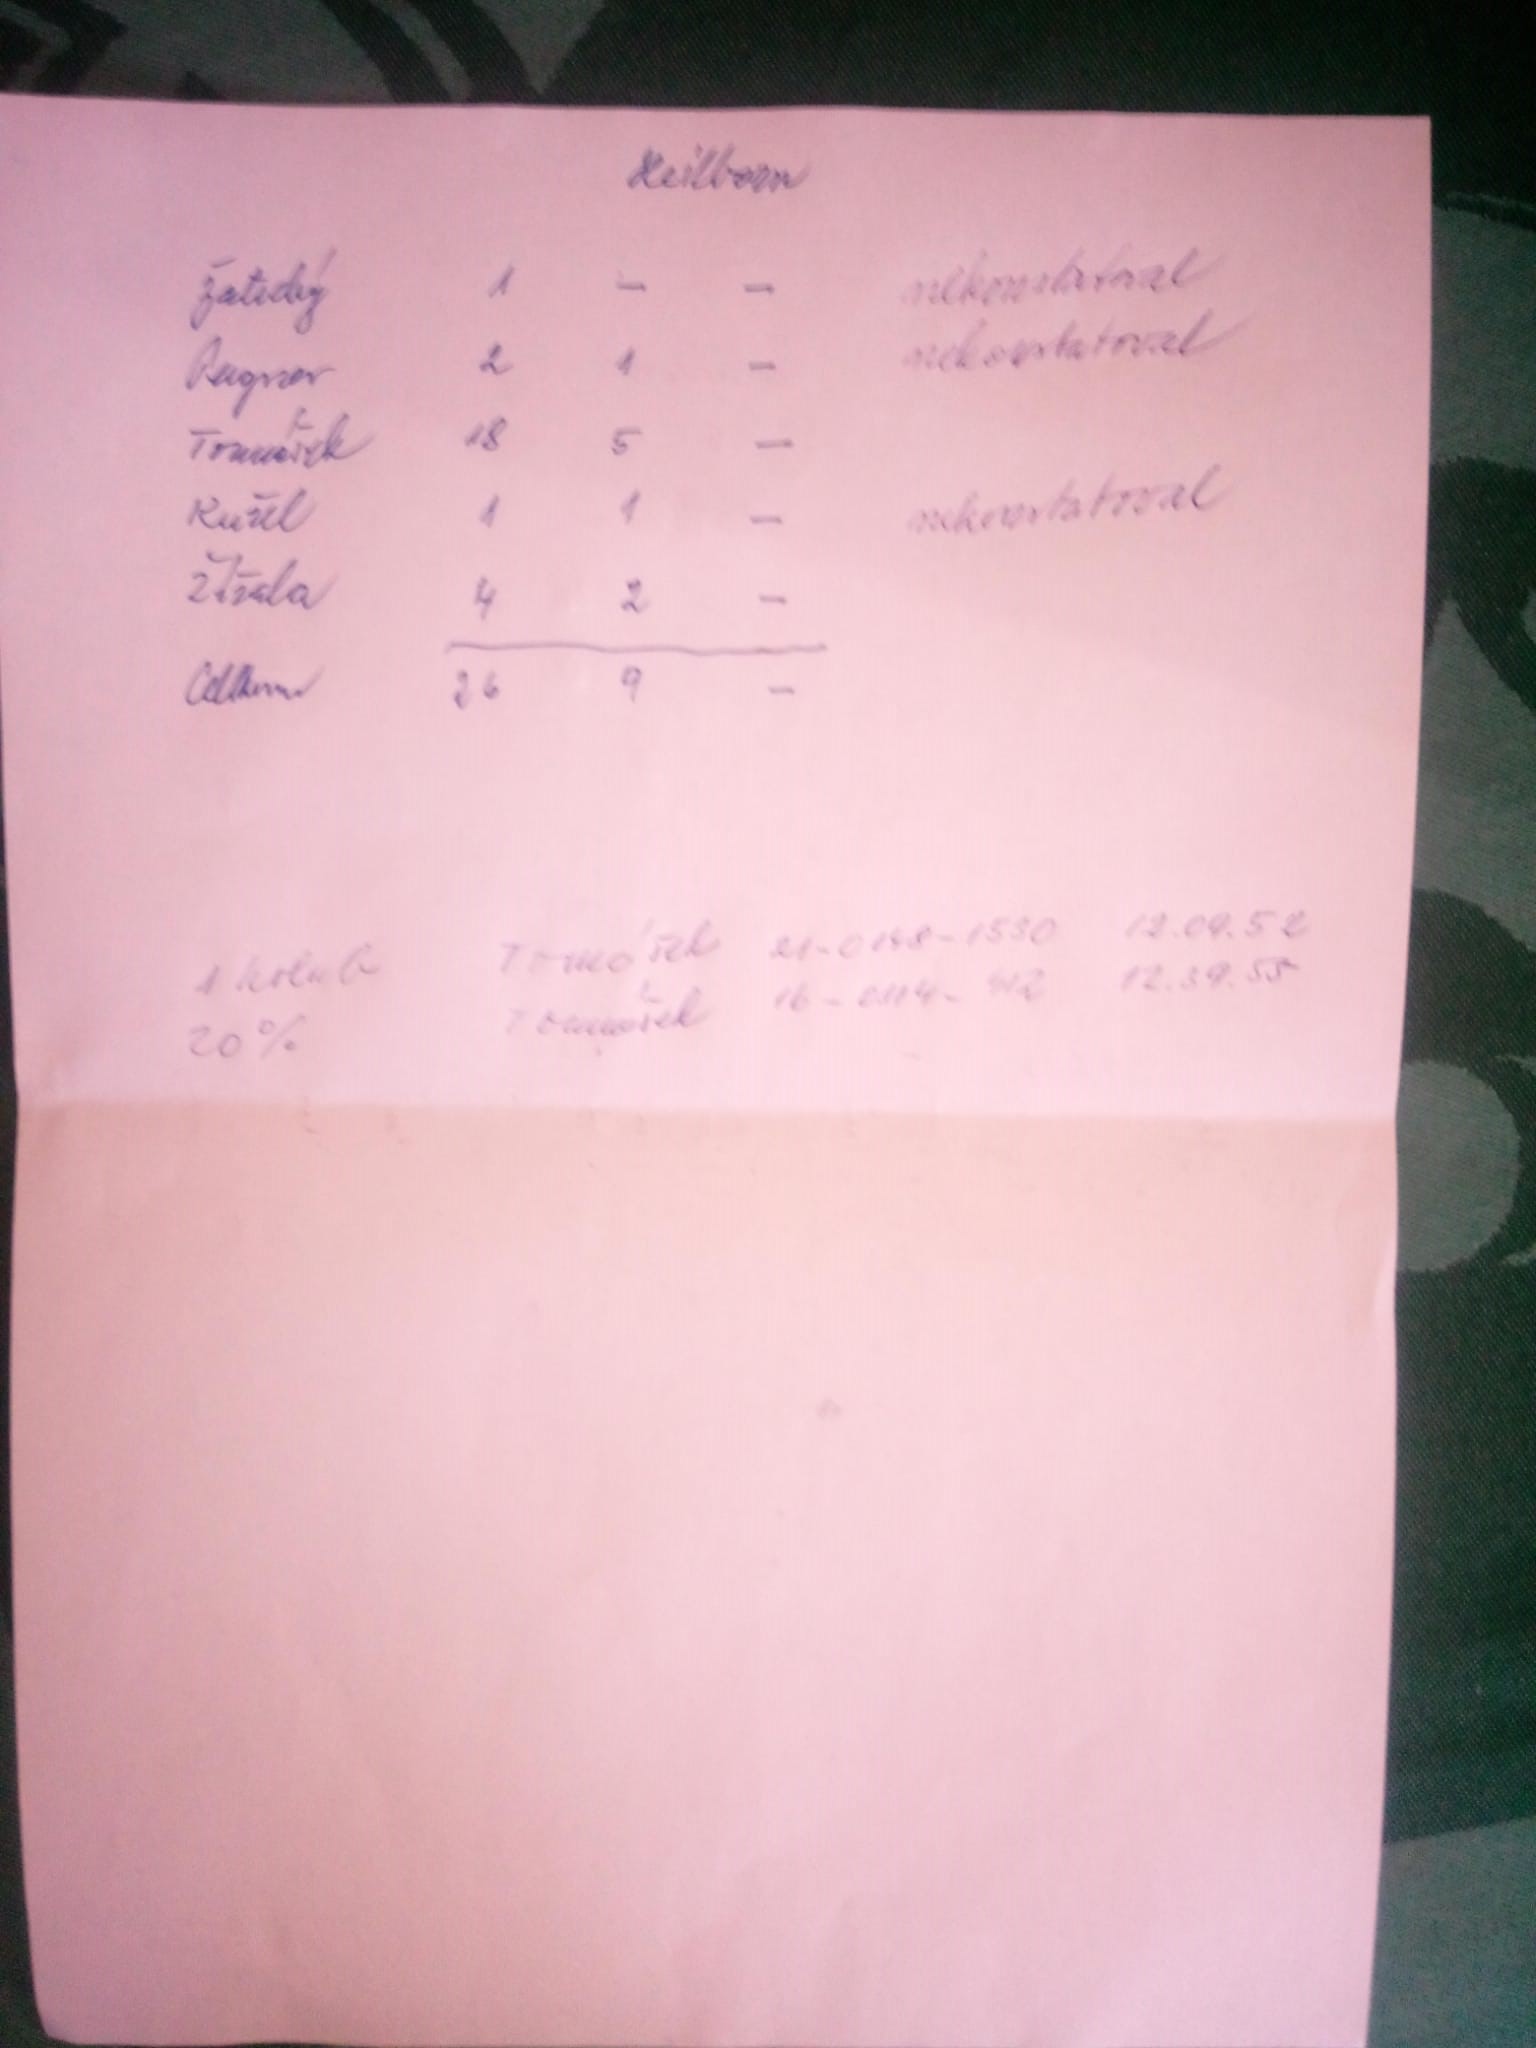 Heilbronn
Žatecký 1 - - nekonstatoval
Wagner 2 1 - nekonstatoval
Tomášek 18 5 -
Kužel 1 1 - nekonstatoval
Žížala 4 2 -
Celkem 26 9 -
1 holub Tomášek 21-0148-1530 12.09.52
20% Tomášek 16-0114- 12.39.55